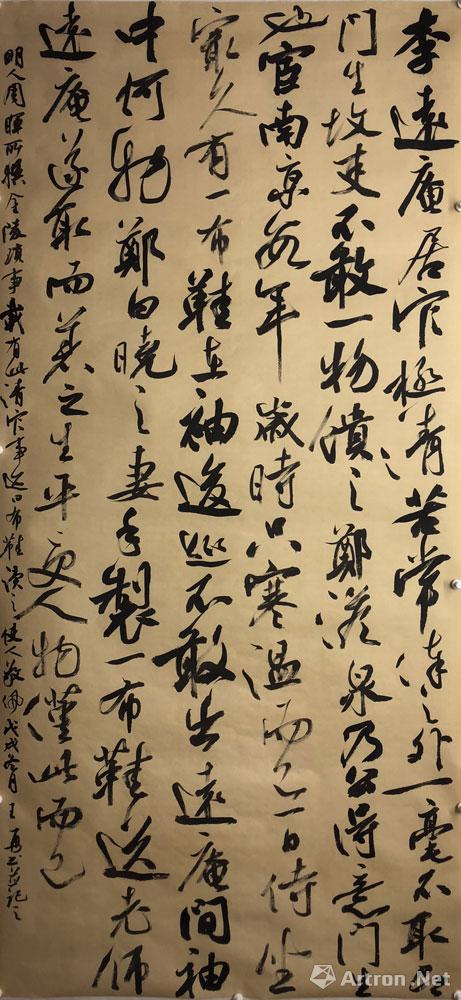 李遠庵居官極清苦常俸之外一毫不取雖
門生故吏不敢一物饋之鄭澹泉乃公得意門生
也官南京數年歲時只寒溫而已一日侍坐
最久有一布鞋在袖逡巡不敢出遠庵問袖
中何物鄭曰曉之妻手製一布鞋送老師
遠庵遂取而著之生平受人物僅此而已
明人周暉所撰金陵瑣事載有此清官事 布鞋讀之使人敬佩戊戌冬月王 書並記之
Artron.Net